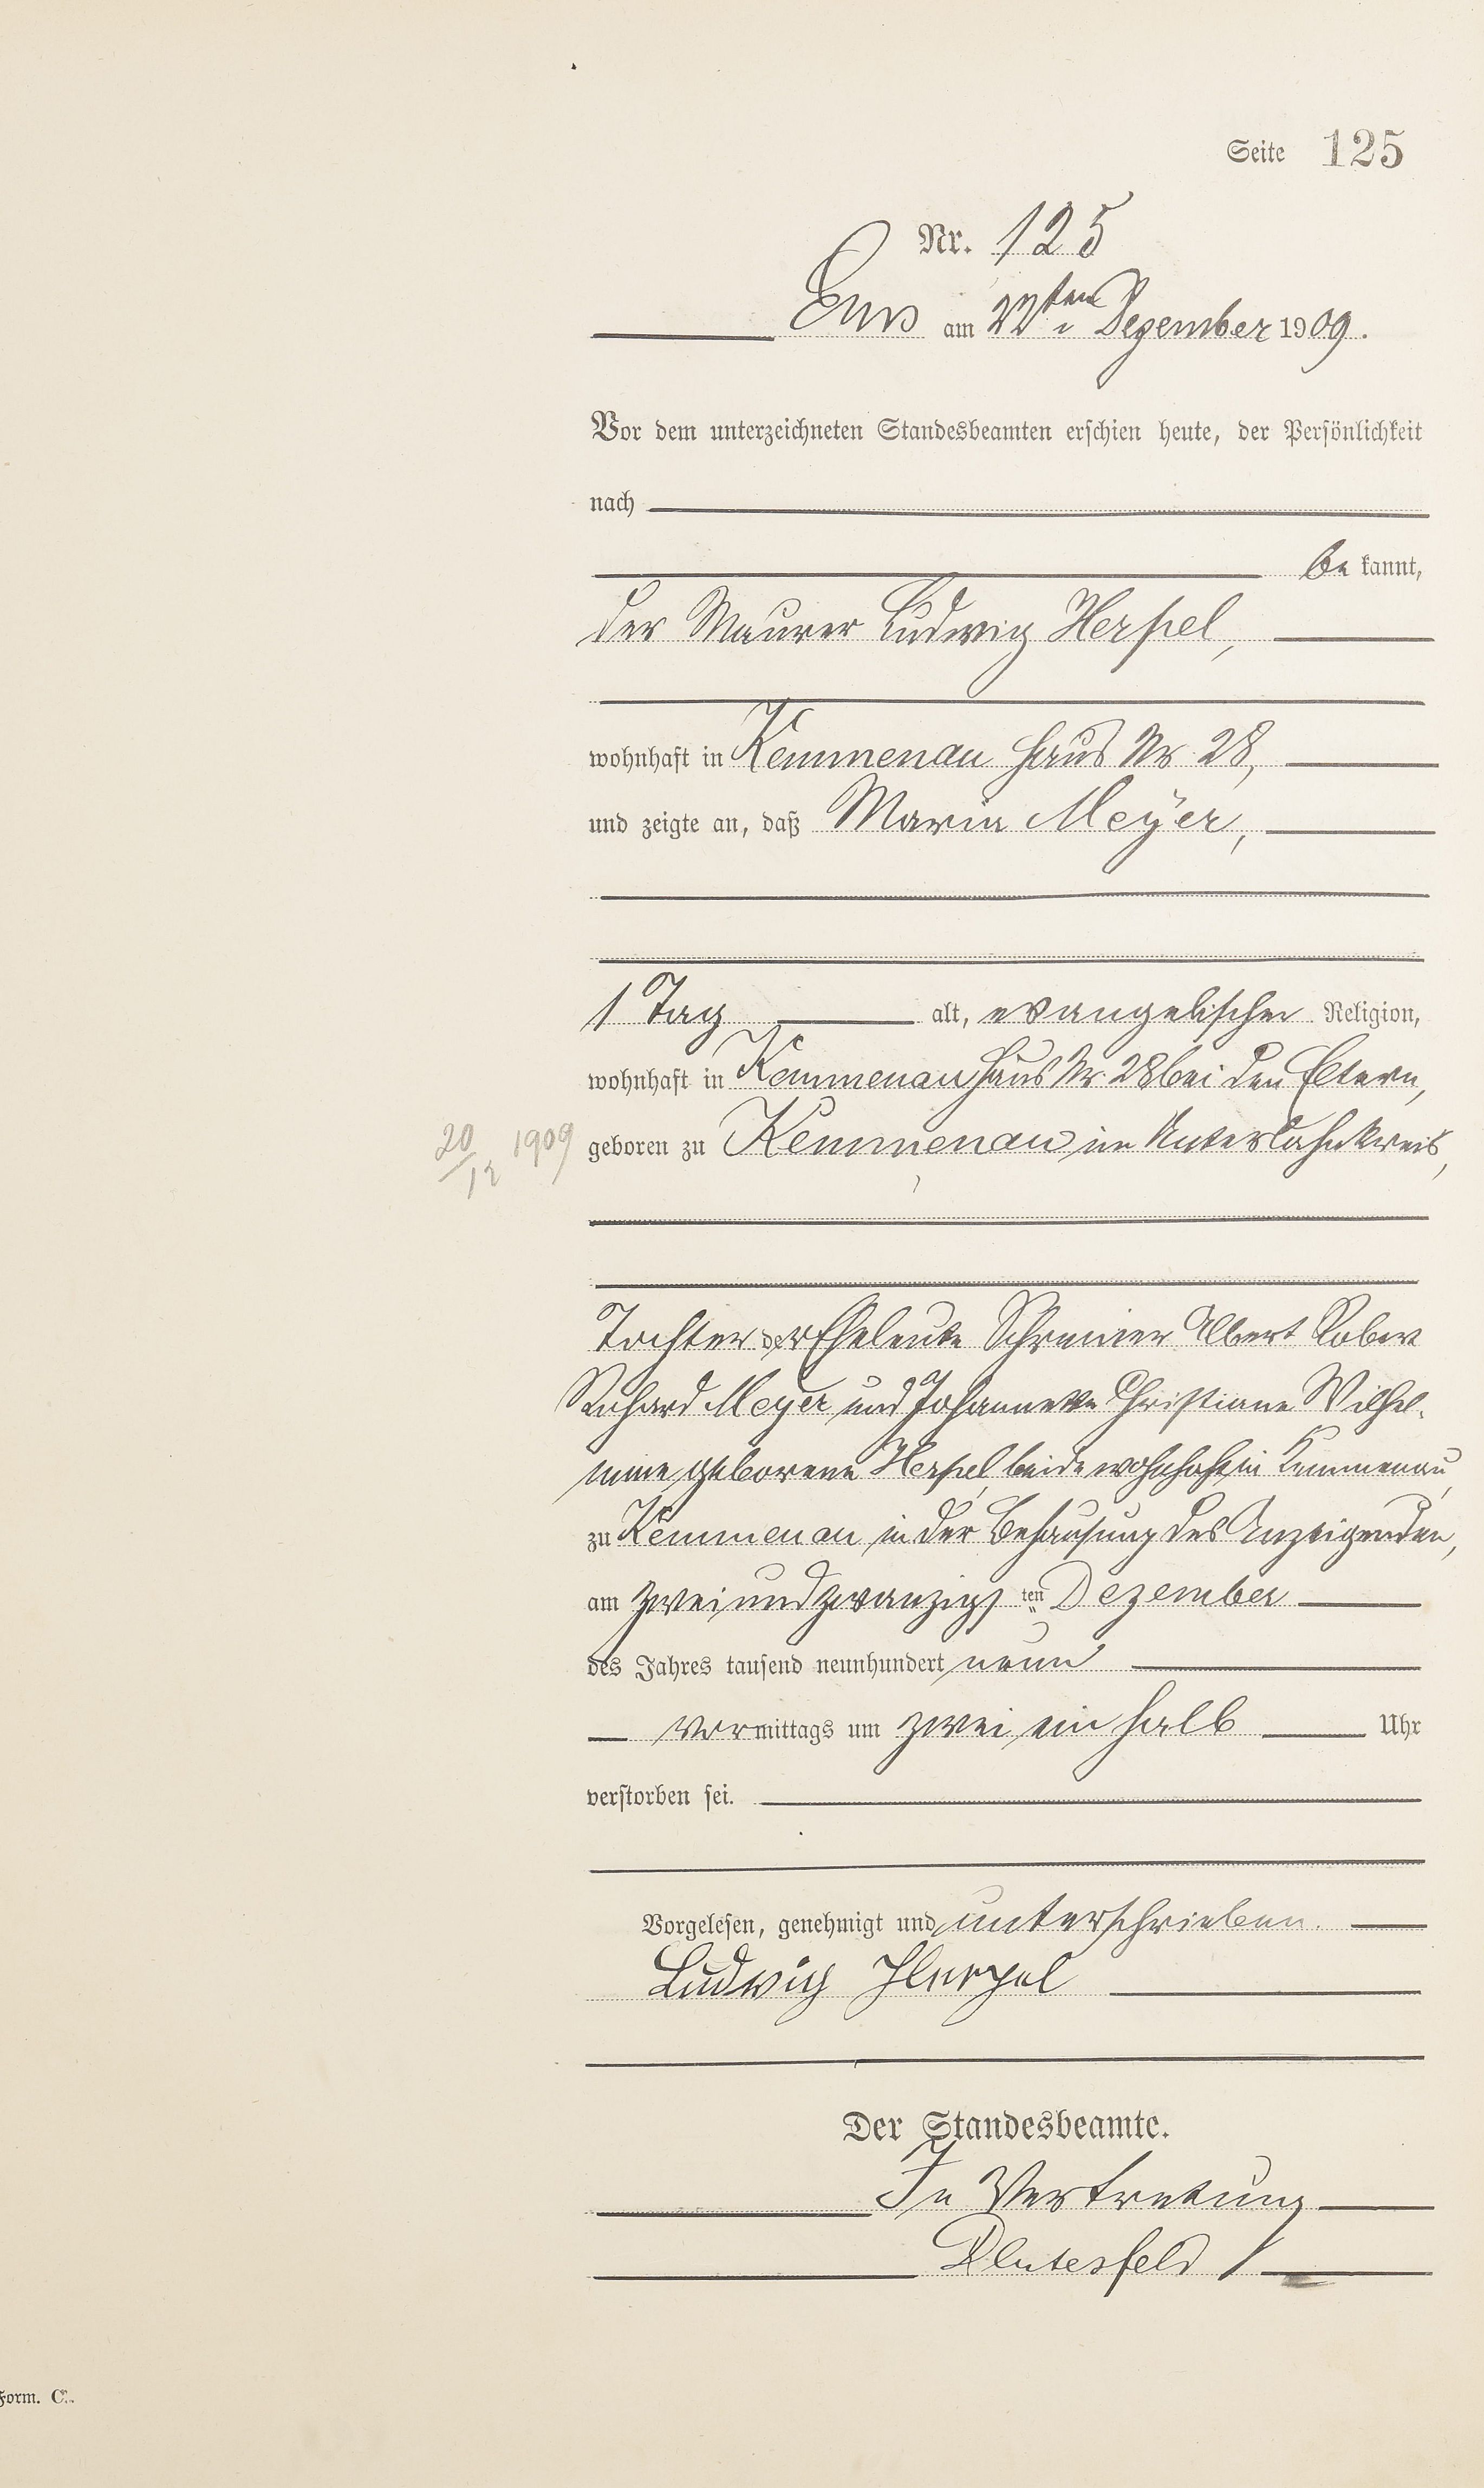 Seite 125
Nr. 125
Ems am 22ten Dezember 1909.
Vor dem unterzeichneten Standesbeamten erschien heute, der Persönlichkeit
nach
be kannt,
der Maurer Ludwig Herpel,
wohnhaft in Kemmenau Haus Nr. 28,
und zeigte an, daß Maria Meyer,
1 Tag alt, evangelischer Religion,
wohnhaft in Kemmenau Haus Nr. 28 bei den Eltern,
20/12 1909
geboren zu Kemmenau im Unterlahnkreis,
Tochter der Eheleute Schreiner Albert Robert
Richard Meyer und Johannette Christiane Wilhel-
mine geborene Herpel, beide wohnhaft in Kemmenau,
zu Kemmenau in der Behausung des Anzeigenden,
am zweiundzwanzigs ten Dezember
des Jahres tausend neunhundert neun
vormittags um zwei ein halb Uhr
verstorben sei.
Vorgelesen, genehmigt und unterschrieben.
Ludwig Herpel
Der Standesbeamte.
In Vertretung
Form. C.